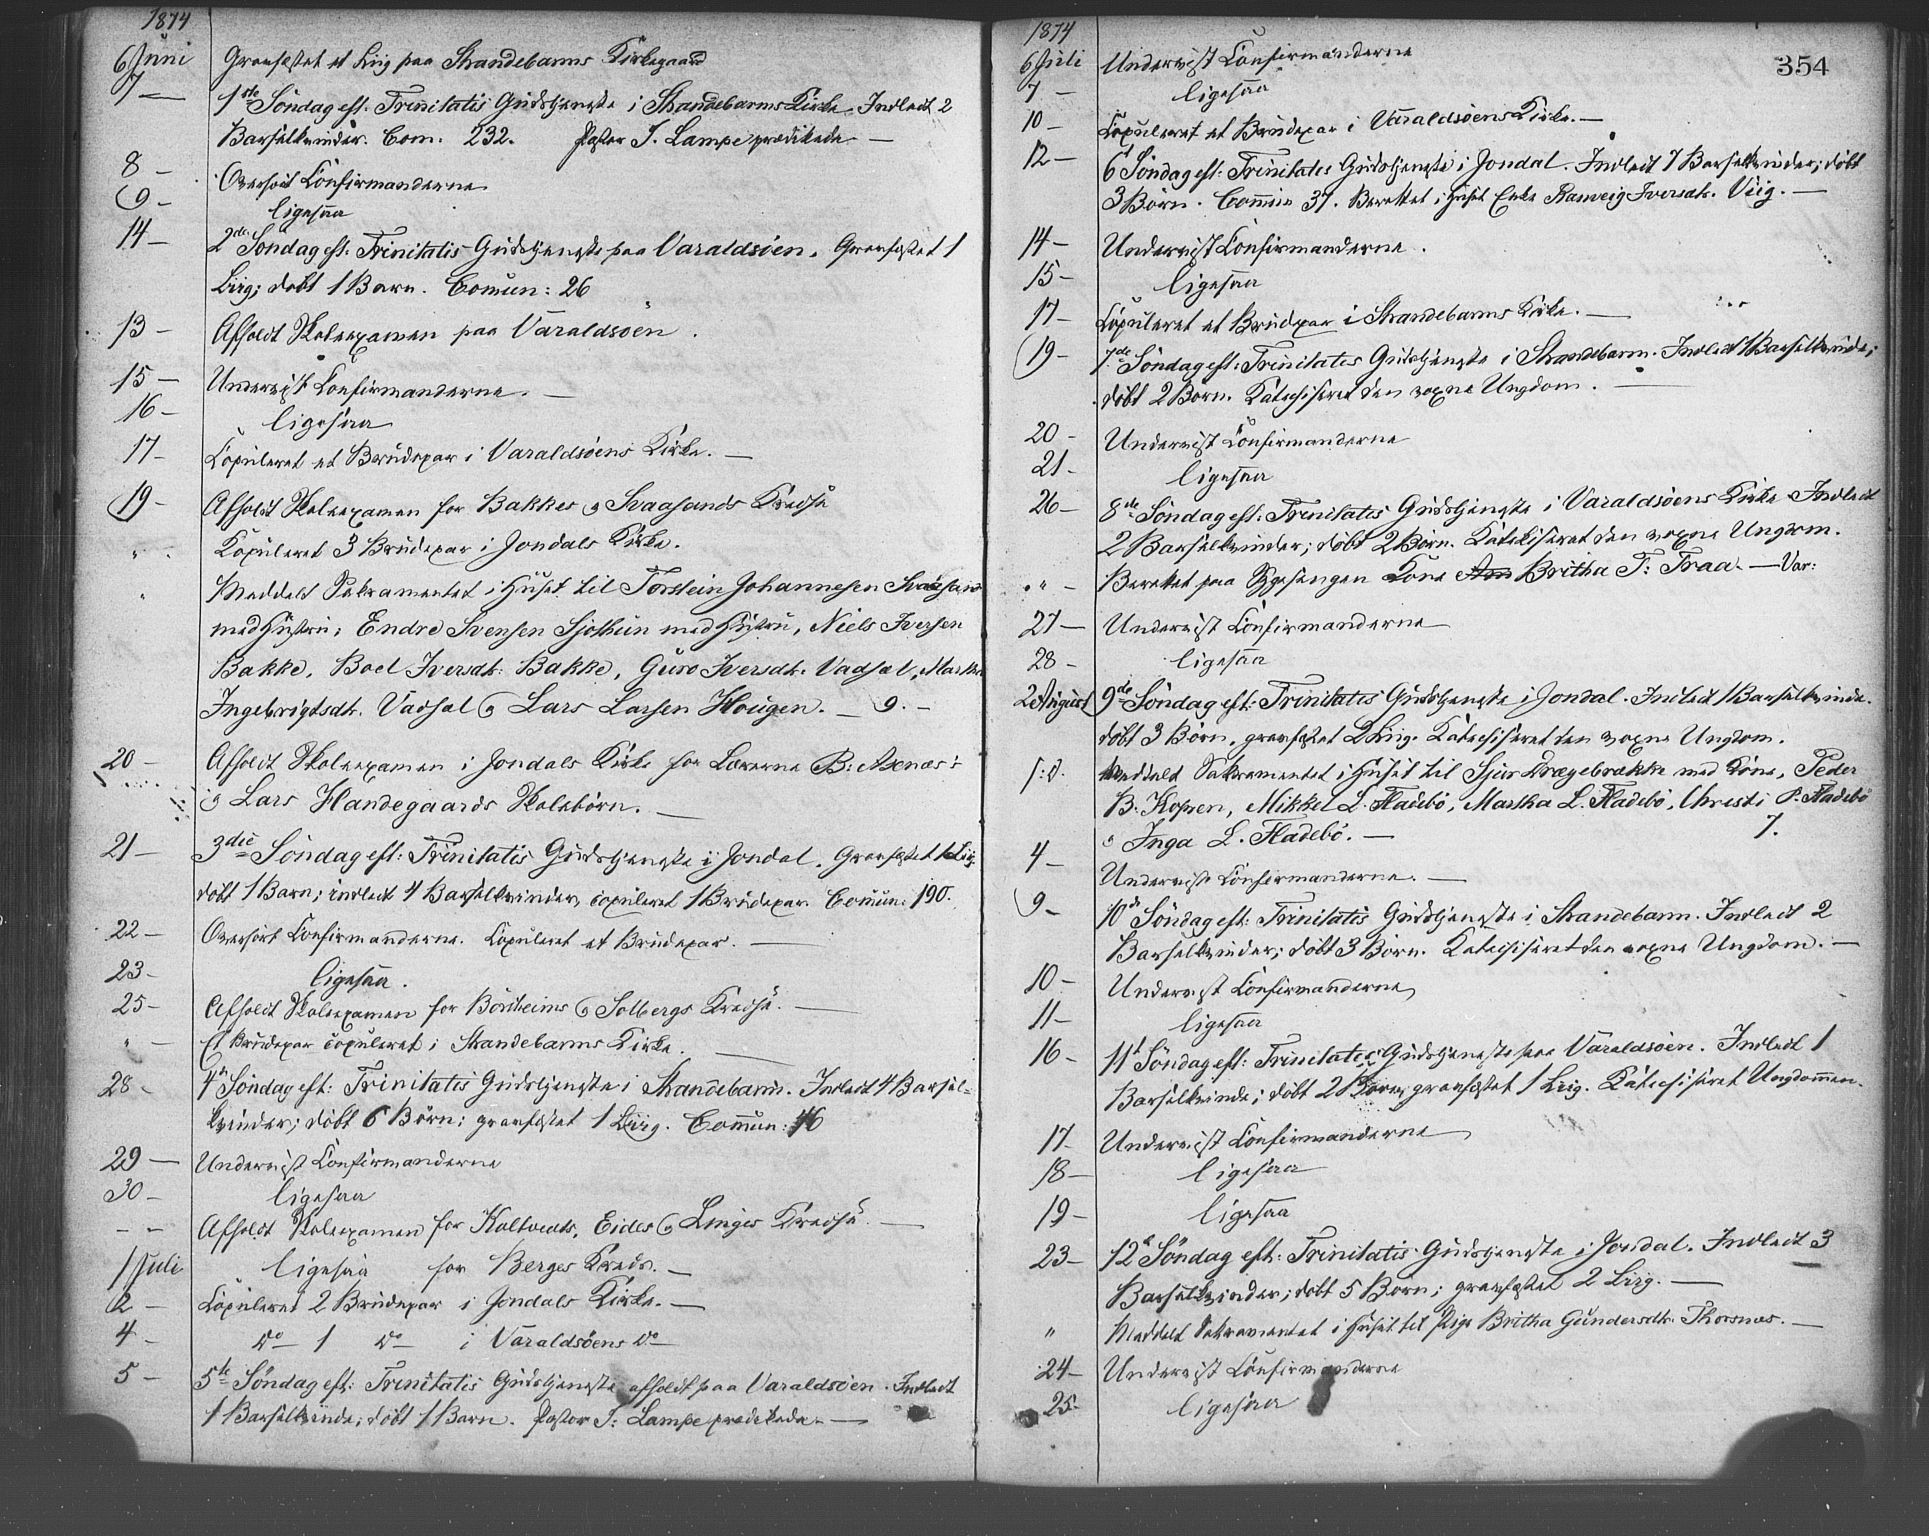 1874
6 Juni Gravfæstet et Liig paa Strandebarms Kirkegaard
7 — 1ste Söndag eft: Trinitatis Gudstjeneste i Strandebarms Kirke. Indledt 2
Barselkvinder. Com. 232. Pastor J. Lampe prædikede —
8 — Overhört Confirmanderne
9 — ligesaa
14 — 2den Söndag eft: Trinitatis Gudstjeneste paa Varaldsöen. Gravfæstet 1
Liig; döbt 1 Barn. Comun: 26
13 — Afholdt Skoleexamen paa Varaldsöen.
15 — Underviist Confirmanderne. —
16 — ligesaa
17 — Copuleret et Brudepar i Varaldsöens Kirke. —
19 — Afholdt Skoleexamen for Bakkes og Svaasands Kredse
" Copuleret 3 Brudepar i Jondals Kirke.
" Meddelt Sakramentet i Huset til Torstein Johannesen Svaasand
med Hustru, Endre Svensen Sjothun med Hustru, Niels Iversen
Bakke, Boel Iversdtr: Bakke, Guro Iversdtr. Vadsel, Martha
Ingebrigtsdtr. Vadsel og Lars Larsen Hougen. — 9. —
20 — Afholdt Skoleexamen i Jondals Kirke for Lærerne B: Axenæs:
og Lars Handegaards Skolebörn. —
21 — 3die Söndag eft: Trinitatis Gudstjeneste i Jondal. Gravfæstet 1 Liig
döbt 1 Barn; indledt 4 Barselkvinder, copuleret 1 Brudepar. Comun: 190.
22 — Overhört Confirmanderne. Copuleret et Brudepar. —
23 — ligesaa.
25 — Afholdt Skoleexamen for Börsheims og Solbergs Kredse. —
" — Et Brudepar copuleret i Strandebarms Kirke. —
28 — 4de Söndag eft: Trinitatis Gudstjeneste i Strandebarm. Indledt 4 Barsel-
kvinder; döbt 6 Börn; gravfæstet 1 Liig. Commun: 46
29 — Underviist Confirmanderne
30 — ligesaa
— " Afholdt Skoleexamen for Holtveits, Eides og Linges Kredse. —
1 Juli ligesaa for Berges Kreds. —
2 — Copuleret 2 Brudepar i Jondals Kirke. —
4 — do 1 do i Varaldsöens do —
5 — 5te Söndag eft: Trinitatis Gudstjeneste afholdt paa Varaldsöen. Indledt
1 Barselkvinde; döbt 1 Barn. Pastor J: Lampe prædikede. —
1874
354
6 Juli Underviist Confirmanderne
7 — ligesaa
10 — Copuleret et Brudepar i Varaldsöens Kirke. —
12 — 6t Söndag eft: Trinitatis Gudstjeneste i Jondal. Indledt 7 Barselkvinder; döbt
3 Börn. Commun 37. Berettet i Huset Enke Ranveig Iversdtr. Viig. —
14 — Underviist Confirmanderne.
15 — ligesaa
17 — Copuleret et Brudepar i Strandebarms Kirke. —
19 — 7de Söndag eft: Trinitatis Gudstjeneste i Strandebarm. Indledt 1 Barselkvinde;
döbt 2 Börn. Katechiseret den voxne Ungdom. —
20 — Underviist Confirmanderne
21 — ligesaa
26 — 8de Söndag eft: Trinitatis Gudstjeneste i Varaldsöens Kirke. Indledt
2 Barselkvinder; döbt 2 Börn. Katekiseret den voxne Ungdom.
" — Berettet paa Sygesengen Kone Britha T: Traa. — Var:
27 — Underviist Confirmanderne
28 — ligesaa
2 August 9de Söndag eft: Trinitatis Gudstjeneste i Jondal. Indledt 1 Barselkvinde.
döbt 3 Börn, gravfæstet 2 Liig. Katechiseret den voxne Ungdom.
s: d. Meddelt Sakramentet i Huset til Sjur Drægebrække med Kone, Peder
B. Kopren, Mikkel L. Fladebö, Martha L. Fladebö, Christi P. Fladebö
og Inga L. Fladebö. — 7.
4 — Underviist Confirmanderne. —
9 — 10de Söndag eft: Trinitatis Gudstjeneste i Strandebarm. Indledt 2
Barselkvinder; döbt 3 Börn. Katechiseret den voxne Ungdom. —
10 — Underviist Confirmanderne
11 — ligesaa
16 — 11t Söndag eft: Trinitatis: Gudstjeneste paa Varaldsöen. Indledt 1
Barselkvinde; döbt 2 Börn, gravfæstet 1 Liig. Katechiseret Ungdommen.
17 — Underviist Confirmanderne
18 — ligesaa
19 — ligesaa
23 — 12t Söndag eft: Trinitatis Gudstjeneste i Jondal. Indledt 3
Barselkvinder; döbt 5 Börn; gravfæstet 2 Liig. —
" Meddelt Sakramentet i Huset til Pige Britha Gundersdtr. Thorsnæs. —
24 — Underviist Confirmanderne
25 — ligesaa